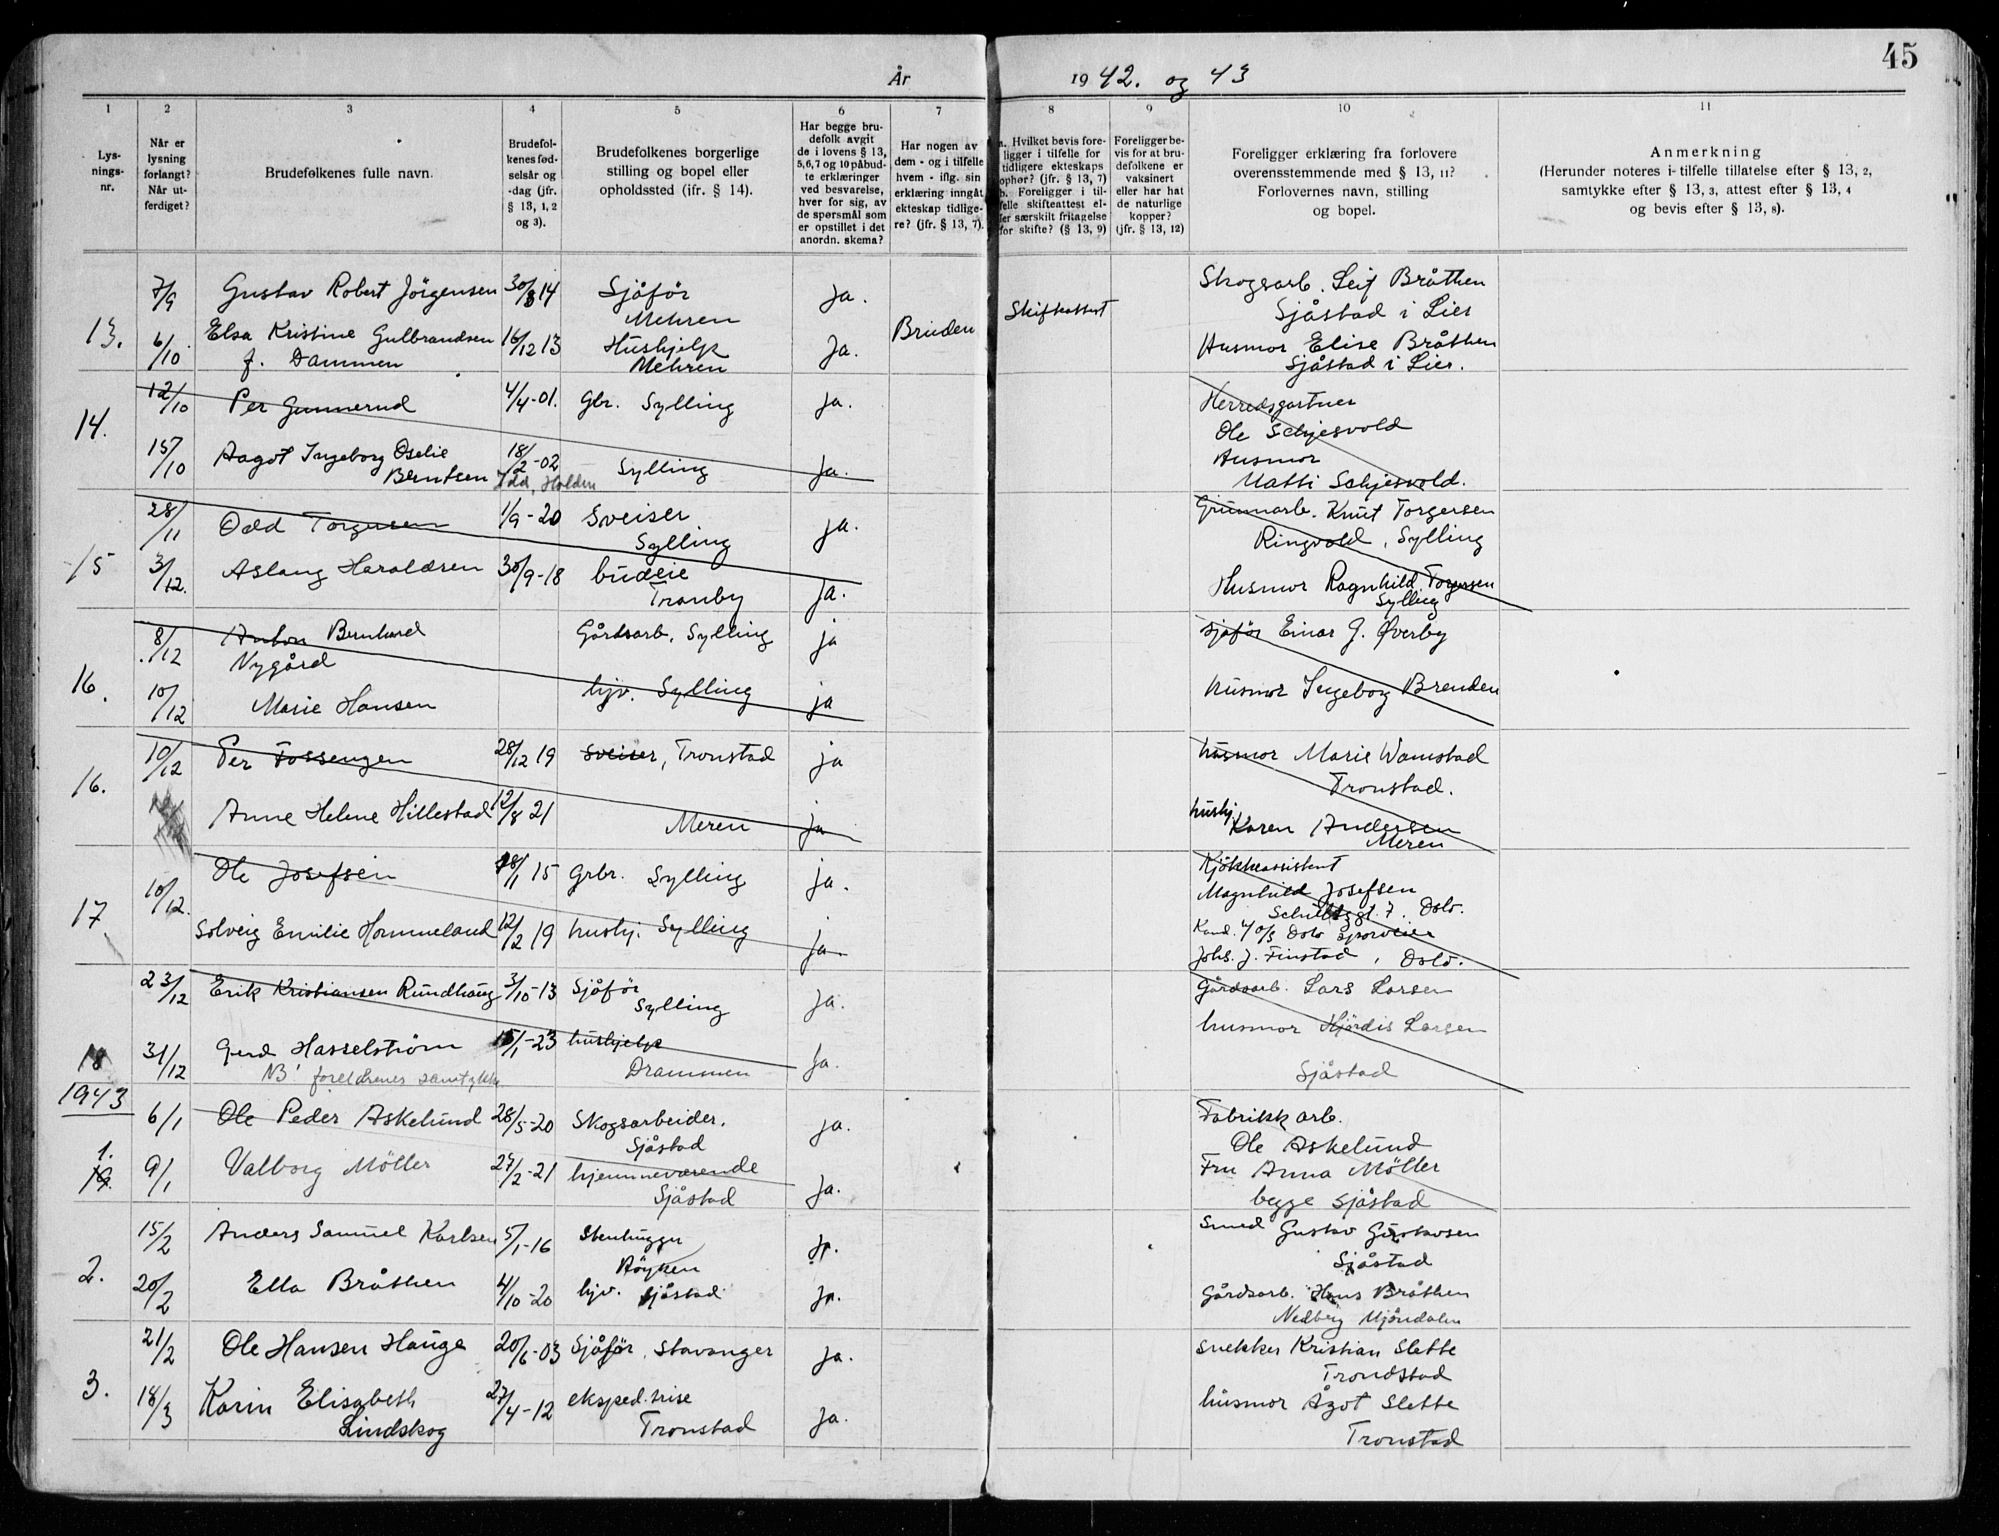 45
År 1942. og 43
1 2 3 4 5 6 7 8 9 10 11
Lys-
nings-
nr.
Når er
lysning
forlangt?
Når ut-
ferdiget?
Brudefolkenes fulle navn.
Brudefol-
kenes fød-
selsår og
-dag (jfr.
§ 13, 1, 2
og 3).
Brudefolkenes borgerlige
stilling og bopel eller
opholdssted (ifr. § 14).
Har begge bru-
defolk avgit
de i lovens § 13,
5,6,7 og 10 påbud-
te erklæringer
ved besvarelse,
hver for sig, av
de spørsmål som
er opstillet i det
anordn. skema?
Har nogen av
dem - og i tilfelle
hvem - iflg. sin
erklæring inngåt
ekteskap tidlige-
re? (jfr. § 13, 7).
a. Hvilket bevis fore-
ligger i tilfelle for
tidligere ekteskaps
ophør? (jfr. § 13, 7)
b. Foreligger i til-
felle skifteattest el-
ler særskilt fritagelse
for skifte? (§ 13, 9)
Foreligger be-
vis for at bru-
defolkene er
vaksinert
eller har hat
de naturlige
kopper?
(jfr. § 13, 12)
Foreligger erklæring fra forlovere
overensstemmende med § 13, 11?
Forlovernes navn, stilling
og bopel.
Anmerkning
(Herunder noteres i tilfelle tillatelse efter § 13, 2,
samtykke efter § 13, 3, attest efter § 13, 4
og bevis efter § 13, 8).
13.
7/9 Gustav Robert Jörgensen 30/8 14 Sjåför
Mehren
Ja.
Skogsarb. Leif Bråthen
Sjåstad i Lier
6/10 Elsa Kristine Gulbrandsen
f. Dammen
16/12 13 Hushjelp
Mehren
Ja.
Bruden
Skifteattest
Husmor Elise Bråthen
Sjåstad i Lier.
14.
12/10 Per Gunnerud 4/4-01. Gbr. Sylling Ja.
Herredsgartner
Ole Schjesvold
15/10 Aagot Ingeborg Oselie
Berntsen
18/2-02
Idd, Halden
Sylling Ja.
Husmor
Matti Schjesvold.
15
28/11 Odd Torgersen 1/9-20 Sveiser
Sylling
Ja.
Grunnarb. Knut Torgersen
Ringvold, Sylling
3/12. Aslaug Haraldsen 30/9-18 budeie
Tranby
Ja.
Husmor Ragnhild Torgersen
Sylling
16.
8/12 Anton Bernhard
Nygård
Gårdsarb, Sylling ja
sjåför Einar G. Øverby
10/12 Marie Hansen hjv. Sylling ja
husmor Ingeborg Brenden
16.
10/12 Per Fossengen 28/12 19 sveiser, Tronstad ja
husmor Marie Wamstad
Tronstad.
Anne Helene Hillestad 12/8 21 Meren ja
hushj.
Karen Andersen
Meren
17
10/12. Ole Josefsen 18/11 15 Grbr. Sylling ja.
Kjökkenassistent
Magnhild Josefsen
Schultzgt. 7. Oslo.
Solveig Emilie Hommeland 12/2 19 hushj. Sylling ja
Kand. Oslo Sporveier
Johs. J. Finstad, Oslo.
18
23/12 Erik Kristiansen Rundhaug 3/10-13 Sjåför
Sylling
Ja.
Gårdsarb. Lars Larsen
31/12 Gerd Hasselström 15/1-23 hushjelp
Drammen
Ja.
NB! foreldrenes samtykke
husmor Hjördis Larsen
Sjåstad
1943
1.
19.
6/1 Ole Peder Askelund 28/5-20 Skogsarbeider.
Sjåstad
Ja.
Fabrikkarb.
Ole Askelund
9/1 Valborg Möller 27/2-21 hjemmeværende
Sjåstad
Ja.
Fru Anna Möller
begge Sjåstad
2.
15/2 Anders Samuel Karlsen 5/1-16 Stenhugger
Röyken
Ja.
Smed Gustav Gustavsen
Sjåstad
20/2 Ella Bråthen 4/10-20 hjv. Sjåstad Ja.
Gårdsarb. Hans Bråthen
Nedberg Mjöndalen
3.
21/2 Ole Hansen Hauge 20/6-03 Sjåför, Stavanger Ja.
snekker Kristian Slette
Trondstad
18/3 Karin Elisabeth
Lindskog
27/4-12 eksped.trise
Tronstad
Ja.
husmor Ågot Slette
Tronstad